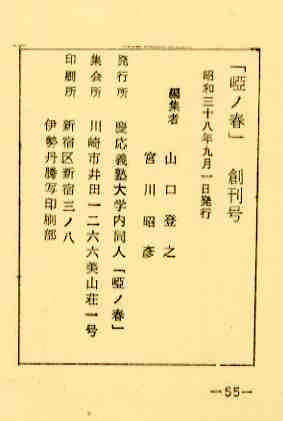 「啞ノ春」創刊号
昭和三十八年九月一日発行
編集者　山口登之
宮川昭彦
発行所　慶応義塾大学内同人「啞ノ春」
集会所　川崎市井田一二六六美山荘一号
印刷所　新宿区新宿三ノ八
伊勢丹騰写印刷部
—55—